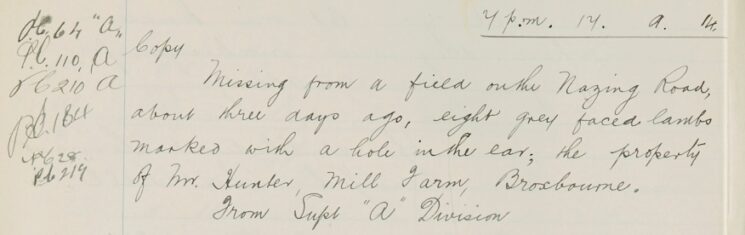 P.C. 64 "A"
P.C. 110, A
P.C. 210 A
P.C. 184
P.C. 28
P.C. 219
7 p.m. 17. 9. 14.
Copy
Missing from a field on the Nazing Road,
about three days ago, eight grey faced lambs
marked with a hole in the ear; the property
of Mr. Hunter, Mill Farm, Broxbourne.
From Supt "A" Division